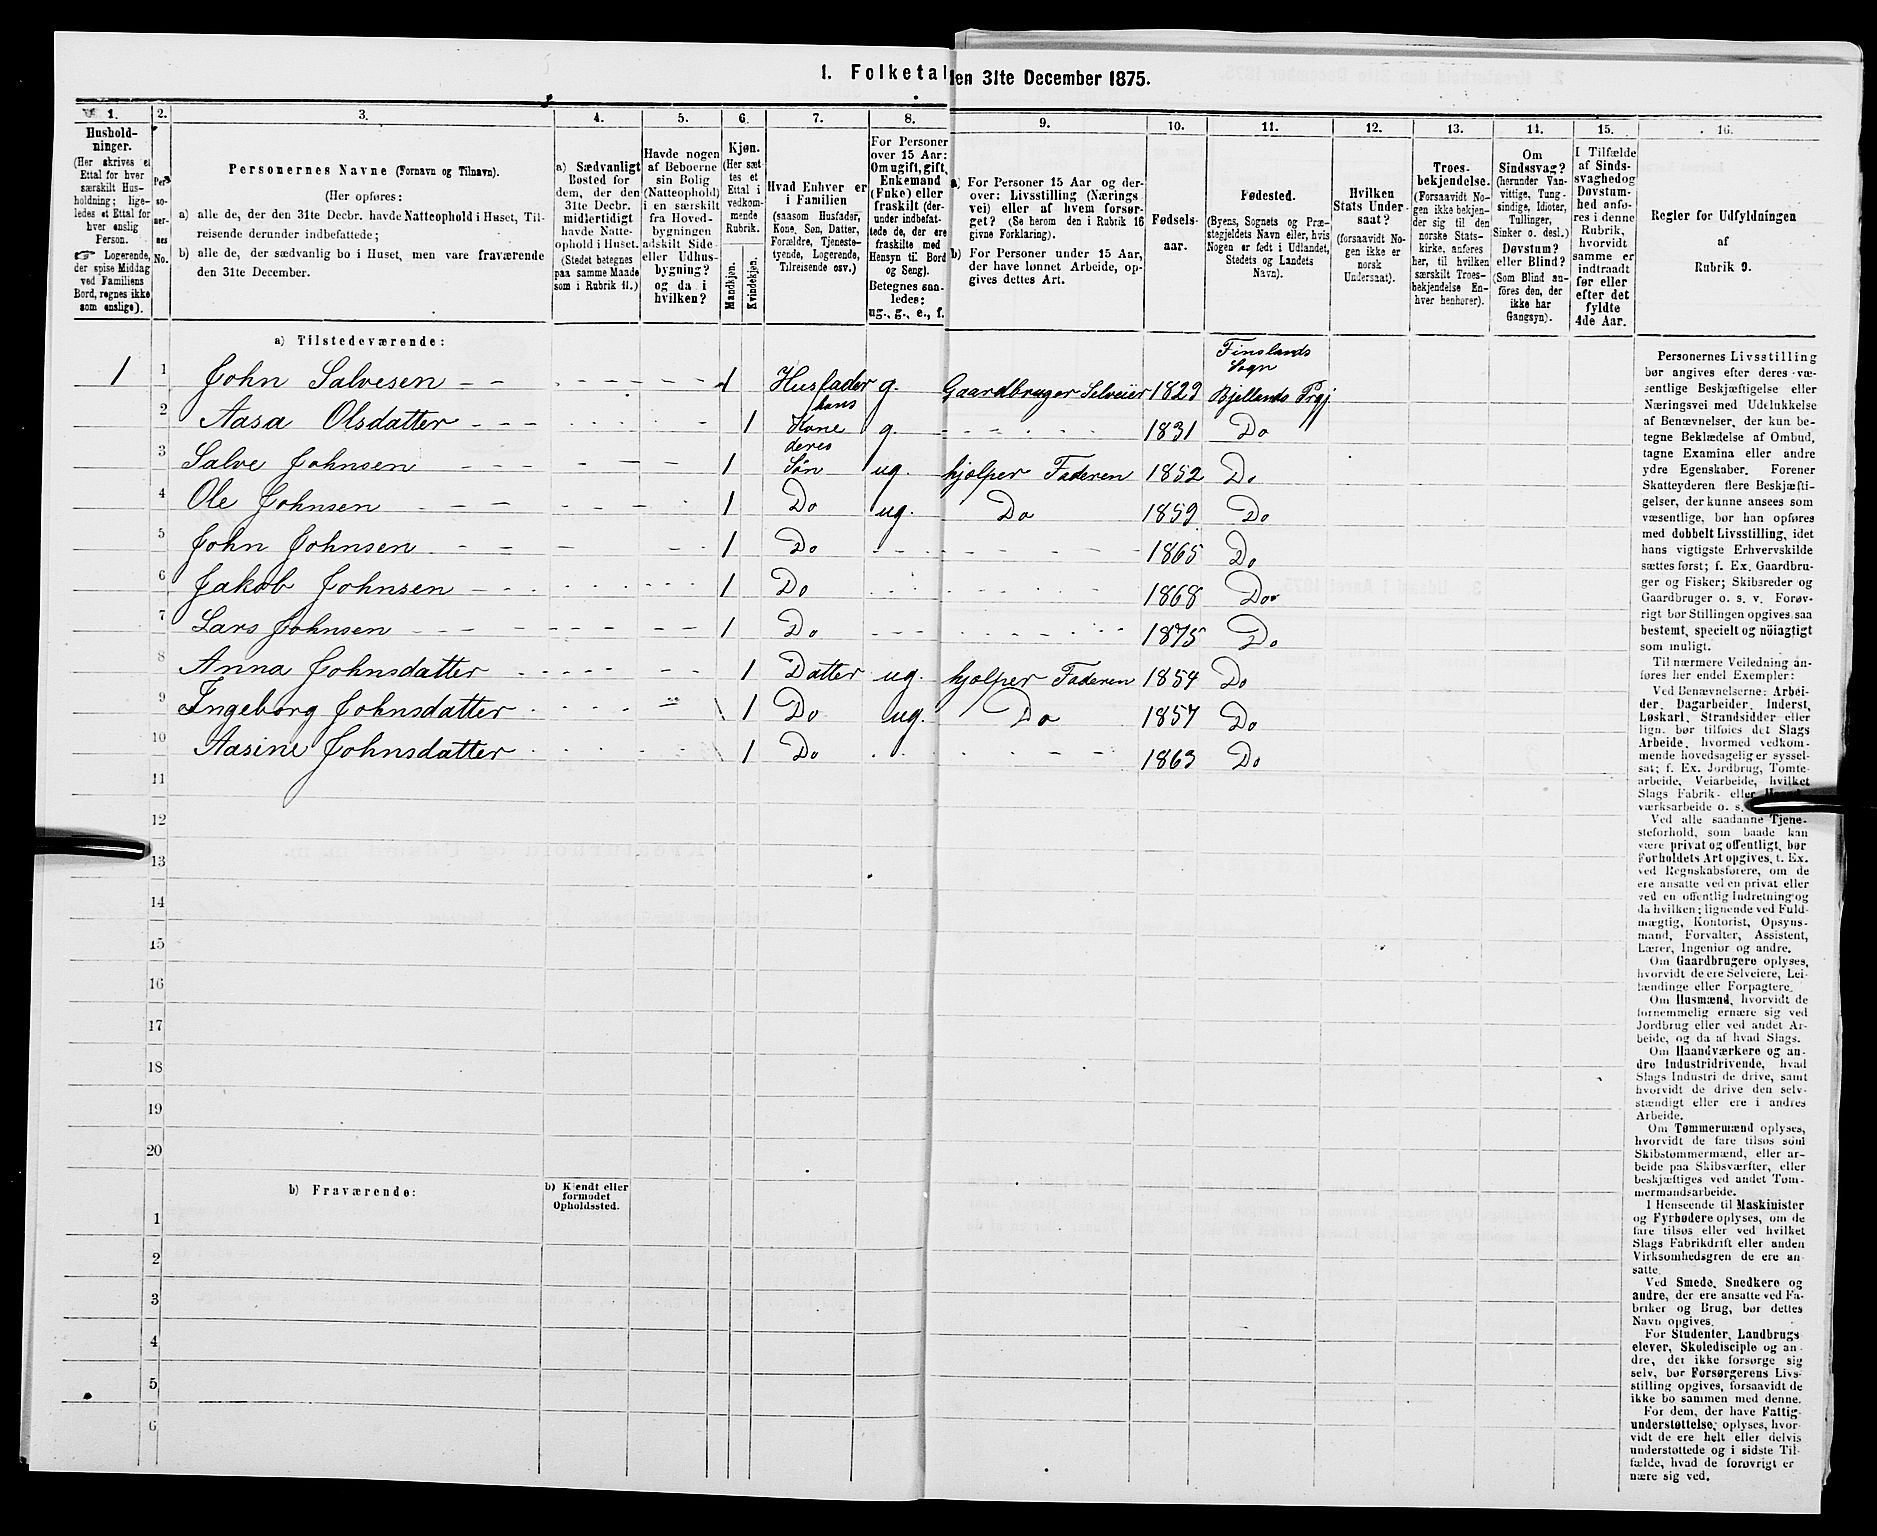 1. Folketal den 31te December 1875.
1. 2. 3. 4. 5. 6. 7. 8. 9. 10. 11. 12. 13. 14. 15. 16.
Hushold-
ninger.
(Her skrives et
Ettal for hver
særskilt Hus-
holdning; lige-
ledes et Ettal for
hver enslig
Person.
Logerende,
der spise Middag
ved Familiens
Bord, regnes ikke
som enslige).
Per-
so-
ner-
nes
No.
Personernes Navne (Fornavn og Tilnavn).
(Her opføres:
a) alle de, der den 31te Decbr. havde Natteophold i Huset, Til-
reisende derunder indbefattede;
b) alle de, der sædvanlig bo i Huset, men vare fraværende
den 31te December.
a) Sædvanligt
Bosted for
dem, der den
31te Decbr.
midlertidigt
havde Natte-
ophold i Huset.
(Stedet betegnes
paa samme Maade
som i Rubrik 11.)
Havde nogen
af Beboerne
sin Bolig
(Natteophold)
i en særskilt
fra Hoved-
bygningen
adskilt Side-
eller Udhus-
bygning?
og da i
hvilken?
Kjøn.
(Her sæt-
tes et
Ettal i
vedkom-
mende
Rubrik.
Mandkjøn.
Kvindekjøn.
Hvad Enhver er
i Familien
(saasom Husfader,
Kone, Søn, Datter,
Forældre, Tjeneste-
tyende, Logerende,
Tilreisende osv.)
For Personer
over 15 Aar:
Om ugift, gift,
Enkemand
(Enke) eller
fraskilt (der-
under indbefat-
tede de, der ere
fraskilte med
Hensyn til Bord
og Seng).
Betegnes saa-
ledes:
ug., g., e., f.
a) For Personer 15 Aar og der-
over: Livsstilling (Nærings-
vei) eller af hvem forsør-
get? (Se herom den i Rubrik 16
givne Forklaring).
b) For Personer under 15 Aar,
der have lønnet Arbeide, op-
gives dettes Art.
Fødsels-
aar.
Fødested.
(Byens, Sognets og Præ-
stegjeldets Navn eller, hvis
Nogen er født i Udlandet,
Stedets og Landets
Navn).
Hvilken
Stats Under-
saat?
(forsaavidt No-
gen ikke er
norsk
Undersaat).
Troes-
bekjendelse.
(Forsaavidt No-
gen ikke bekjen-
der sig til den
norske Stats-
kirke, anføres
her, til hvilken
særskilt Troes-
bekjendelse En-
hver henhører).
Om
Sindssvag?
(herunder Van-
vittige, Tung-
sindige, Idioter,
Tullinger,
Sinker o. desl.)
Døvstum?
eller Blind?
(Som Blind an-
føres den, der
ikke har
Gangsyn).
I Tilfælde
af Sinds-
svaghed og
Døvstum-
hed anfø-
res i denne
Rubrik,
hvorvidt
samme er
indtraadt
før eller
efter det
fyldte
4de Aar.
Regler for Udfyldningen
af
Rubrik 9.
a) Tilstedeværende:
1 1 John Salvesen 1 Husfader g. Gaardbruger Selveier 1829 Finslands Sogn Bjellands Prgj
2 Aasa Olsdatter 1 hans Kone g. 1831 Do
3 Salve Johnsen 1 deres Søn ug. hjælper Faderen 1852 Do
4 Ole Johnsen 1 Do ug. Do 1859 Do
5 John Johnsen 1 Do 1865 Do
6 Jakob Johnsen 1 Do 1868 Do
7 Lars Johnsen 1 Do 1875 Do
8 Anna Johnsdatter 1 Datter ug. hjælper Faderen 1854 Do
9 Ingeborg Johnsdatter 1 Do ug. Do 1857 Do
10 Aasine Johnsdatter 1 Do 1863 Do
11
12
13
14
15
16
17
18
19
20
b) Fraværende:
b) Kjendt eller
formodet
Opholdssted.
1
2
3
4
5
6
Personernes Livsstilling
bør angives efter deres væ-
sentlige Beskjæftigelse eller
Næringsvei med Udelukkelse
af Benævnelser, der kun be-
tegne Beklædelse af Ombud,
tagne Examina eller andre
ydre Egenskaber. Forener
Skatteyderen flere Beskjæfti-
gelser, der kunne ansees som
væsentlige, bør han opføres
med dobbelt Livsstilling, idet
hans vigtigste Erhvervskilde
sættes først; f. Ex. Gaardbru-
ger og Fisker; Skibsreder og
Gaardbruger o. s. v. Forøv-
rigt bør Stillingen opgives saa
bestemt, specielt og nöiagtigt
som muligt.
Til nærmere Veiledning an-
føres her endel Exempler:
Ved Benævnelserne: Arbei-
der, Dagarbeider, Inderst,
Løskarl, Strandsidder eller
lign. bør tilføies det Slags
Arbeide, hvormed vedkom-
mende hovedsagelig er syssel-
sat; f. Ex. Jordbrug, Tomte-
arbeide, Veiarbeide, hvilket
Slags Fabrik- eller Haand-
værksarbeide o. s.
Ved alle saadanne Tjene-
steforhold, som baade kan
være privat og offentligt, bør
Forholdets Art opgives, t. Ex.
ved Regnskabsførere, om de
ere ansatte ved en privat eller
ved en offentlig Indretning og
da hvilken; lignende ved Fuld-
mægtig, Kontorist, Opsyns-
mand, Forvalter, Assistent,
Lærer, Ingeniør og andre.
Om Gaardbrugere oplyses,
hvorvidt de ere Selveiere, Lei-
lændinge eller Forpagtere.
Om Husmænd, hvorvidt de
fornemmelig ernære sig ved
Jordbrug eller ved andet Ar-
beide, og da af hvad Slags.
Om Haandværkere og an-
dre Industridrivende, hvad
Slags Industri de drive, samt
hvorvidt de drive den selv-
stændigt eller ere i andres
Arbeide.
Om Tømmermænd oplyses,
hvorvidt de fare tilsøs som
Skibstømmermænd, eller ar-
beide paa Skibsværfter, eller
beskjæftiges ved andet Tøm-
mermandsarbeide.
I Henseende til Maskinister
og Fyrbødere oplyses, om de
fare tilsøs eller ved hvilket
Slags Fabrikdrift eller anden
Virksomhedsgren de ere an-
satte.
Ved Smede, Snedkere og
andre, der ere ansatte ved Fa-
briker og Brug, bør dettes
Navn opgives.
For Studenter, Landbrugs-
elever, Skoledisciple og an-
dre, der ikke forsørge sig
selv, bør Forsørgerens Livs-
stilling opgives, forsaavidt de
ikke bo sammen med denne.
For dem, der have Fattig-
understøttelse, oplyses, hvor-
vidt de ere helt eller delvis
understøttede og i sidste Til-
fælde, hvad de forøvrigt er-
nære sig ved.